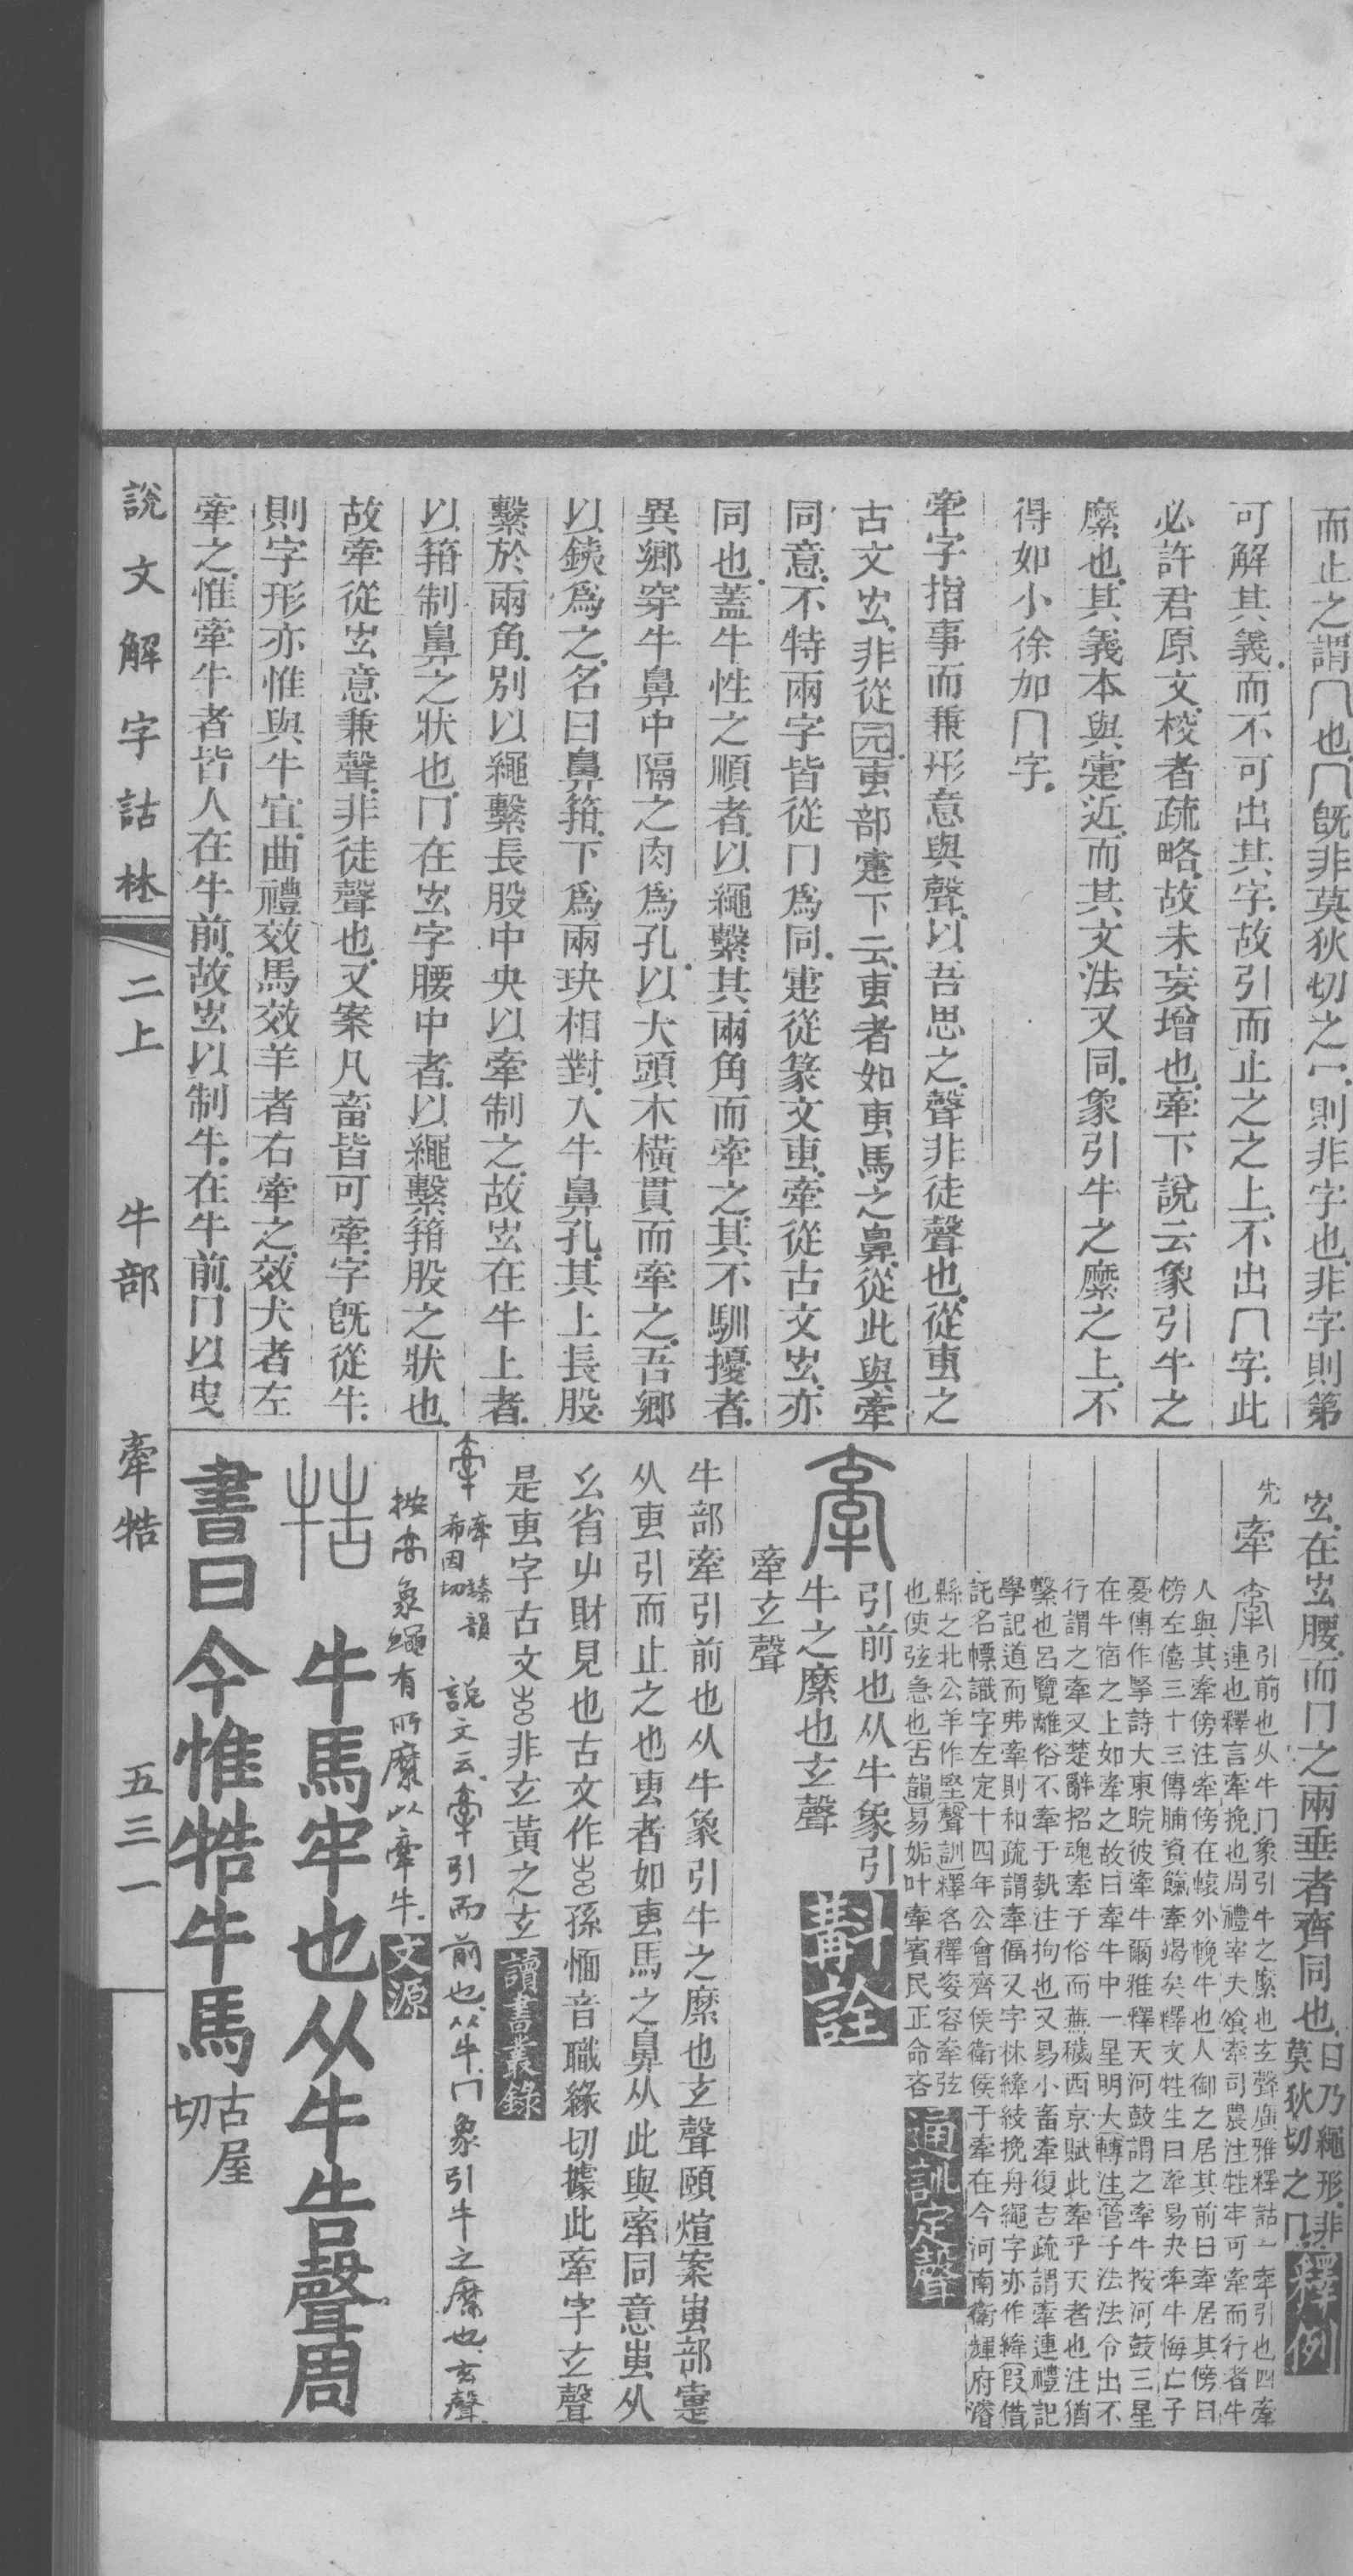 而止之謂冂也冂旣非莫狄切之冖則非字也非字則第
可解其義而不可出其字故引而止之之上不出冂字此
必許君原文校者疏略故未妄增也牽下說云象引牛之
縻也其義本與疐近而其文法又同象引牛之縻之上不
得如小徐加冂字
牽字指事而兼形意與聲以吾思之聲非徒聲也從叀之
古文㞢非從元叀部疐下云叀者如叀馬之鼻從此與牽
同意不特兩字皆從冂爲同疐從篆文叀牽從古文㞢亦
同也蓋牛性之順者以繩繫其兩角而牽之其不馴擾者
異鄉穿牛鼻中隔之肉爲孔以大頭木橫貫而牽之吾鄉
以鐵爲之名曰鼻箝下爲兩玦相對入牛鼻孔其上長股
繫於兩角別以繩繫長股中央以牽制之故㞢在牛上者
以箝制鼻之狀也冂在㞢字腰中者以繩繫箝股之狀也
故牽從㞢意兼聲非徒聲也又案凡畜皆可牽字旣從牛
則字形亦惟與牛宜曲禮效馬效羊者右牽之效犬者左
牽之惟牽牛者皆人在牛前故㞢以制牛在牛前冂以曳
㞢在㞢腰而冂之兩垂者齊同也曰乃繩形非
莫狄切之冂釋例
先牽
引前也从牛冂象引牛之縻也玄聲廣雅釋詁一牽引也四牽
連也釋言牽挽也周禮宰夫飧牽司農注牲牢可牽而行者牛
人與其牽傍注牽傍在轅外輓牛也人御之居其前曰牽居其傍曰
傍左僖三十三傳脯資餼牽竭矣釋文牲生曰牽易夬牽牛悔亡子
夏傳作掔詩大東睆彼牽牛爾雅釋天河鼓謂之牽牛按河鼓三星
在牛宿之上如牽之故曰牽牛中一星明大轉注管子法法令出不
行謂之牽又楚辭招魂牽于俗而蕪穢西京賦此牽乎天者也注猶
繫也呂覽離俗不牽于埶注拘也又易小畜牽復吉疏謂牽連禮記
學記道而弗牽則和疏謂牽偪又字林縴紋挽舟繩字亦作縴叚借
託名幖識字左定十四年公會齊侯衛侯于牽在今河南衛輝府濬
縣之北公羊作堅聲訓釋名釋姿容牽弦
也使弦急也古韻易姤叶牽賓民正命吝通訓定聲
引前也从牛象引
牛之縻也玄聲斠詮
牽玄聲
牛部牽引前也从牛象引牛之縻也玄聲頤煊案叀部疐
从叀引而止之也叀者如叀馬之鼻从此與牽同意叀从
幺省屮財見也古文作㞢孫愐音職緣切據此牽字玄聲
是叀字古文㞢非玄黃之玄讀書叢錄
牽希因切臻韻說文云牽引而前也从牛冂象引牛之縻也玄聲
按象繩有所縻以牽牛文源
牿牛馬牢也从牛告聲周
書曰今惟牿牛馬古屋切
說文解字詁林 二上 牛部 牽牿 五三一